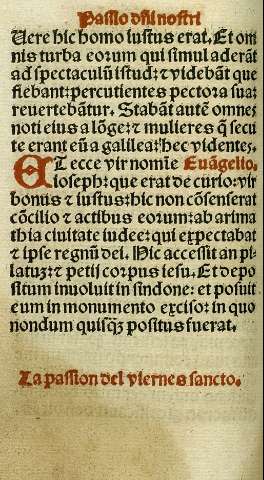 Passio dñi nostri
Uere hic homo iustus erat. Et om
nis turba eorum qui simul aderãt
ad spectaculũ istud: ⁊ videbãt que
fiebant: percutientes pectora sua:
reuertebãtur. Stabãt autẽ omnes
noti eius a lõge: ⁊ mulieres q̃ secu
te erant eũ a galilea: hec videntes.
ET ecce vir nomĩe Euãgelio.
Ioseph: que erat decurio: vir
bonus ⁊ iustus: hic non cõsenserat
cõcilio ⁊ actibus eorum: ab arima
thia ciuitate iudee: qui expectabat
⁊ ipse regnũ dei. Hic accessit an pi-
latuz: ⁊ petij corpus iesu. Et depo
situm inuoluit in sindone: et posuit
eum in monumento exciso: in quo
nondum quisq̃ȝ positus fuerat.
La passion del viernes sancto.